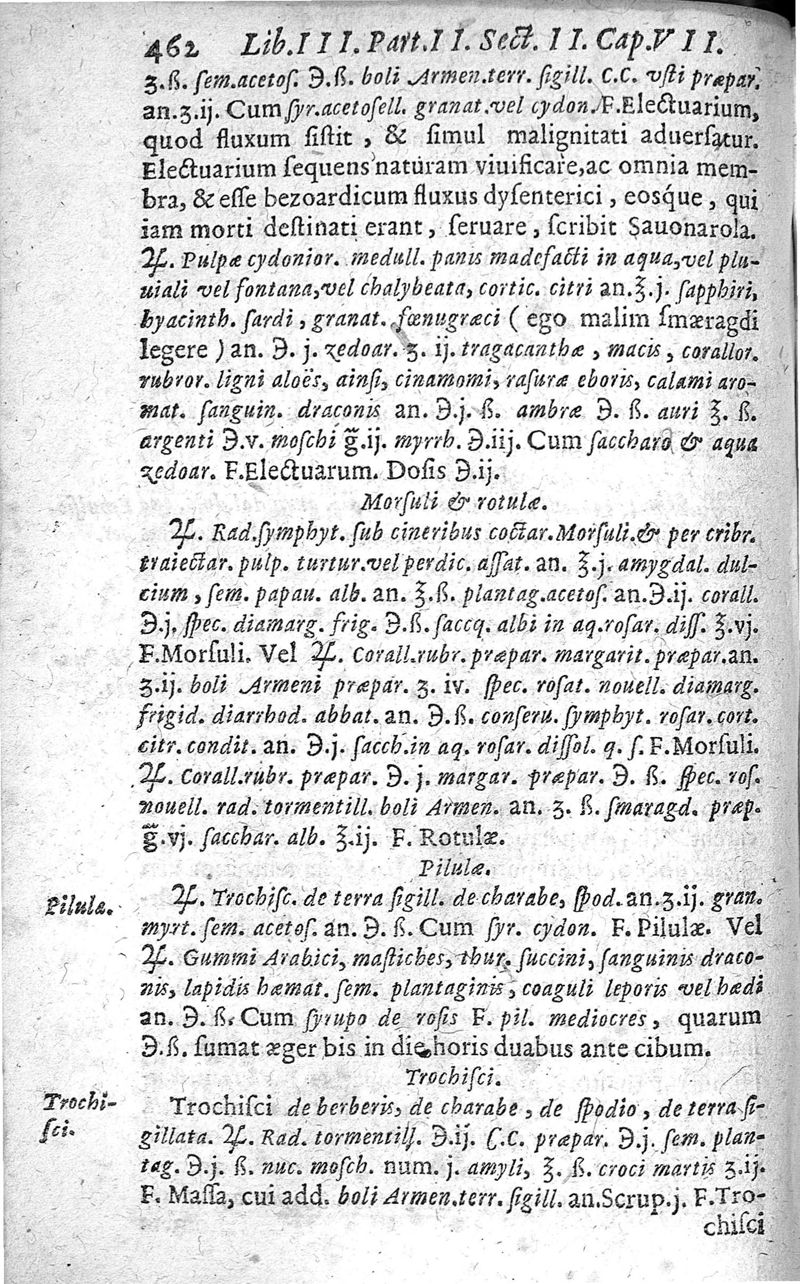 462 Lib.III.Part.II. Sect.II. Cap.VII.
ʒ.ß. ſem.acetoſ. ℈.ß. boli Armen.terr. ſigill. C.C. vſti præpar.
an.ʒ.ij. Cum ſyr.acetoſell. granat.vel cydon. F.Electuarium,
quod fluxum ſiſtit, & ſimul malignitati aduerſatur.
Electuarium ſequens naturam viuificare, ac omnia mem-
bra, & eſſe bezoardicum fluxus dyſenterici, eosq́ue, qui
iam morti deſtinati erant, ſeruare, ſcribit Sauonarola.
♃. Pulpæ cydonior. medull. panis madefacti in aqua, vel plu-
uiali vel fontana, vel chalybeata, cortic. citri an.℥.j. ſapphiri,
hyacinth. ſardi, granat. fœnugræci ( ego malim ſmæragdi
legere ) an. ℈. j. zedoar. ʒ. ij. tragacanthæ, macis, corallor.
rubror. ligni aloës, ainſi, cinamomi, raſuræ eboris, calami aro-
mat. ſanguin. draconis an. ℈.j. ß. ambræ ℈. ß. auri ℥. ß.
argenti ℈.v. moſchi g̃.ij. myrrh. ℈.iij. Cum ſaccharo & aqua
zedoar. F.Electuarum. Doſis ℈.ij.
Morſuli & rotulæ.
♃. Rad.ſymphyt. ſub cineribus coctar. Morſuli.& per cribr.
traiectar. pulp. turtur.vel perdic. aſſat. an. ℥.j. amygdal. dul-
cium, ſem. papau. alb. an. ℥.ß. plantag.acetoſ. an.℈.ij. corall.
℈.j. ſpec. diamarg. frig. ℈.ß. ſaccq. albi in aq.roſar. diſſ. ℥.vj.
F.Morſuli. Vel ♃. Corall.rubr.præpar. margarit. præpar.an.
ʒ.ij. boli Armeni præpar. ʒ. iv. ſpec. roſat. nouell. diamarg.
frigid. diarrhod. abbat. an. ℈.ß. conſeru. ſymphyt. roſar. cort.
citr. condit. an. ℈.j. ſacch.in aq. roſar. diſſol. q. ſ. F.Morſuli.
♃. Corall.rubr. præpar. ℈. j. margar. præpar. ℈. ß. ſpec. roſ.
nouell. rad. tormentill. boli Armen. an. ʒ. ß. ſmaragd. præp.
g̃.vj. ſacchar. alb. ℥.ij. F. Rotulæ.
Pilulæ.
Pilulæ.
♃. Trochiſc. de terra ſigill. de charabe, ſpod. an.ʒ.ij. gran.
myrt. ſem. acetoſ. an. ℈. ß. Cum ſyr. cydon. F. Pilulæ. Vel
♃. Gummi Arabici, maſtiches, thur. ſuccini, ſanguinis draco-
nis, lapidis hæmat. ſem. plantaginis, coaguli leporis vel hædi
an. ℈. ß. Cum ſyrupo de roſis F. pil. mediocres, quarum
℈.ß. ſumat æger bis in die, horis duabus ante cibum.
Trochiſci.
Trochi-
ſci.
Trochiſci de berberis, de charabe, de ſpodio, de terra ſi-
gillata. ♃. Rad. tormentill. ℈.ij. C.C. præpar. ℈.j. ſem. plan-
tag. ℈.j. ß. nuc. moſch. num. j. amyli, ℥. ß. croci martis ʒ.ij.
F. Maſſa, cui add. boli Armen.terr. ſigill. an.Scrup.j. F.Tro-
chiſci